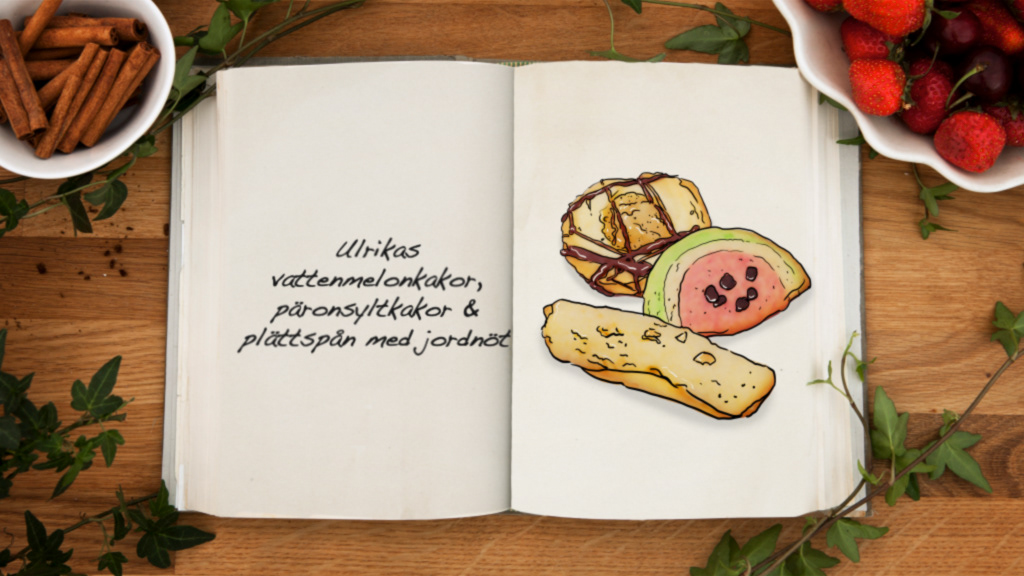 Ulrikas
vattenmelonkakor,
päronsyltkakor &
plättspån med jordnöt